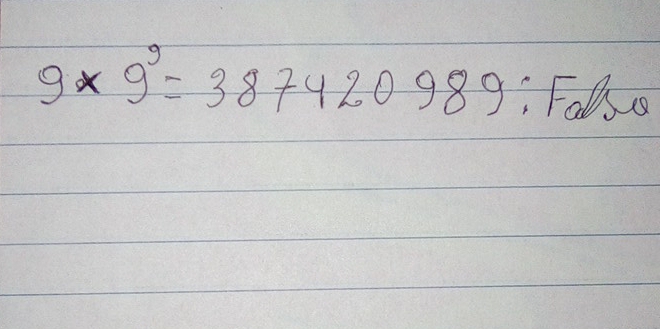 9 × 9⁹ = 387420989 : Falso